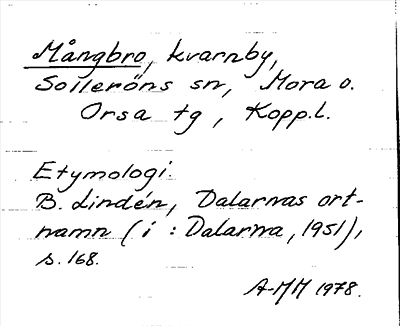 Mångbro, kvarnby,
Solleröns sn, Mora o.
Orsa tg, Kopp.l.
Etymologi.
B. Lindén, Dalarnas ort-
namn (i : Dalarna, 1951),
s. 168.
A-MH 1978.